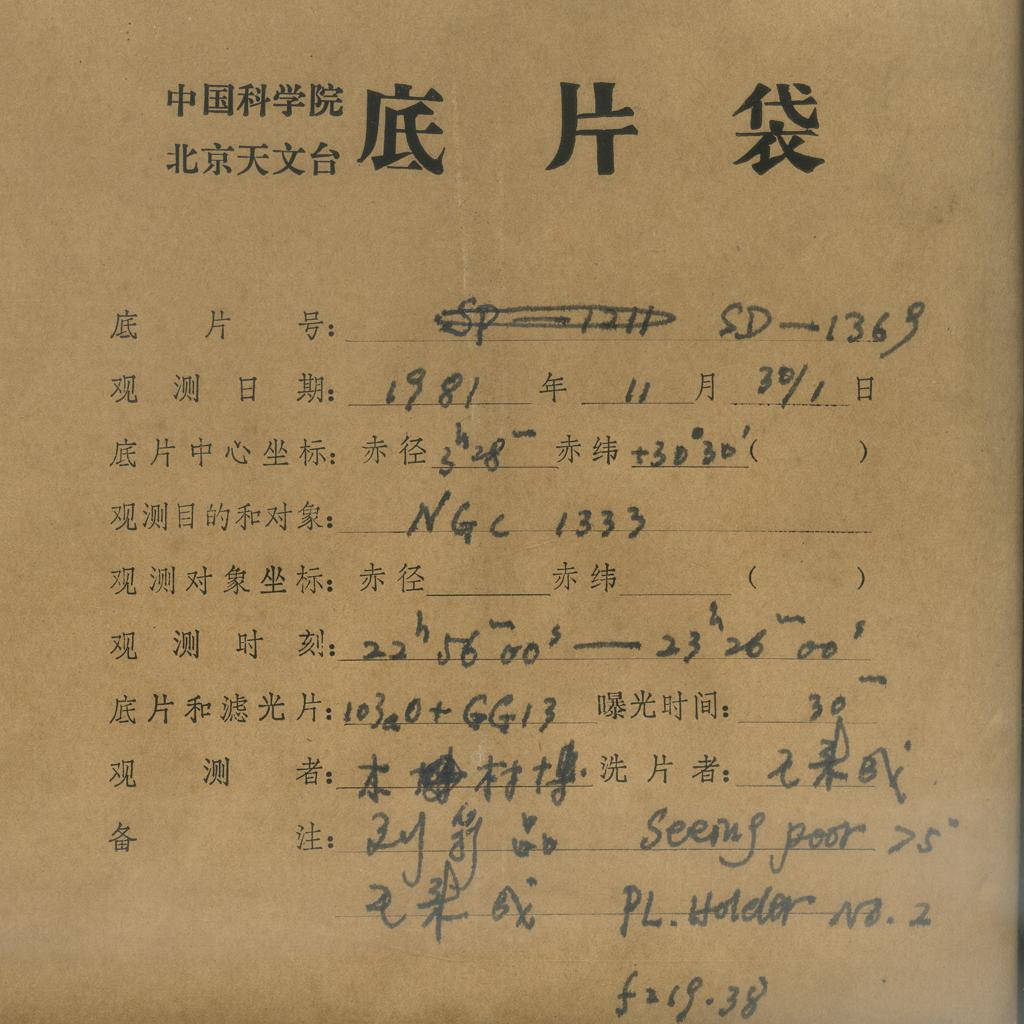 中国科学院
北京天文台
底片袋
底片号: SD—1369
观测日期: 1981年 11月 30/1日
底片中心坐标: 赤径 3h28m 赤纬 +30°30′( )
观测目的和对象: NGC 1333
观测对象坐标: 赤径 赤纬 ( )
观测时刻: 22h56m00s — 23h26m00s
底片和滤光片: 103aO+GG13 曝光时间: 30m
观测者: 木村博 洗片者:
备注: Seeing poor >5"
PL. Holder No. 2
f=19.38